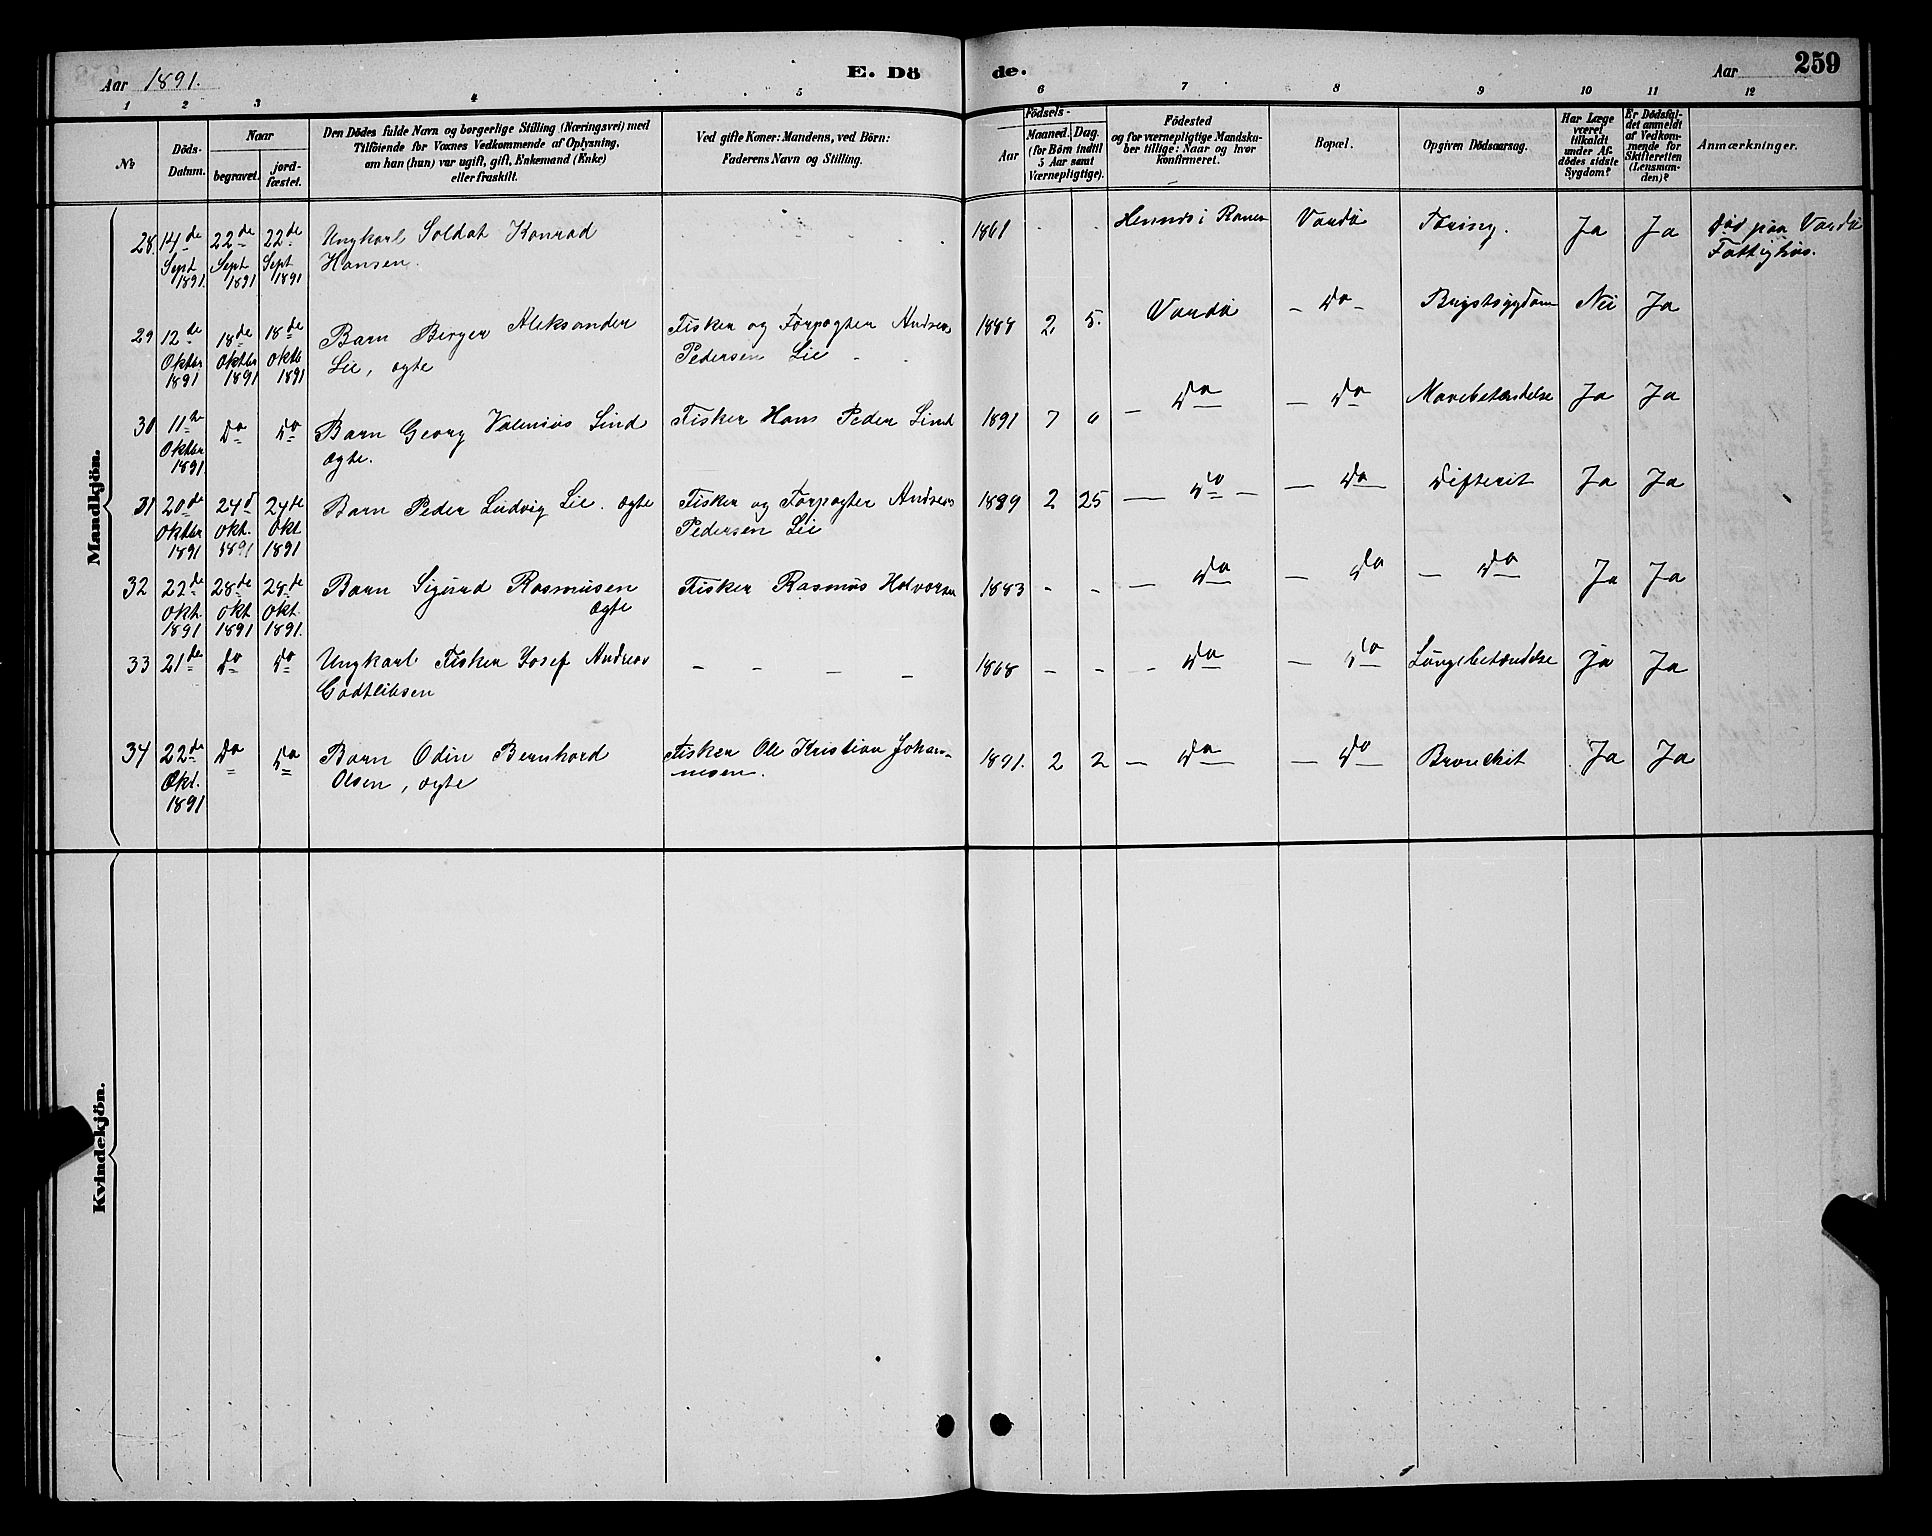 Aar 1891. E. Dö de. Aar 259
1 2 3 4 5 6 7 8 9 10 11 12
№
Döds-Datum.
Naar
begravet.
jord-fæstet.
Den Dödes fulde Navn og borgerlige Stilling (Næringsvei) med
Tilföiende for Voxnes Vedkommende af Oplysning,
om han (hun) var ugift, gift, Enkemand (Enke)
eller fraskilt.
Ved gifte Koner: Mandens, ved Börn:
Faderens Navn og Stilling.
Födsels-
Aar
Maaned. Dag.
(for Börn indtil
5 Aar samt
Værnepligtige).
Födested
og for værnepligtige Mandska-
ber tillige: Naar og hvor
konfirmeret.
Bopæl.
Opgiven Dödsaarsag.
Har Læge
været
tilkaldt
under Af-
dödes sidste
Sygdom?
Er Dödsfal-
det anmeldt
af Vedkom-
mende for
Skifteretten
(Lensman-
den)?
Anmærkninger.
Mandkjön.
28. 14de Sept 1891. 22de Sept 1891 22de Sept 1891 Ungkarl Soldat Konrad
Hansen. 1861 - - Hemnes i Ranen Vardö Tæring. Ja Ja Död paa Vardö
Fattighus.
29 12te Oktbr 1891 18de Oktbr 1891 18de Oktb 1891 Barn Berger Aleksander
Lie, ægte Fisker og Forpagter Andreas
Pedersen Lie 1888 2 5. Vardö - Do - Brystsygdom Nei Ja
30 11te Oktbr 1891 Do Do Barn Georg Valensius Lind
ægte. Fisker Hans Peder Lind 1891 7 6 - Do - Do Mavebetændelse Ja Ja
31 20de Oktbr 1891 24d Okt. 1891 24de Okt 1891 Barn Peder Ludvig Lie. ægte Fisker og Forpagter Andreas
Pedersen Lie 1889 2 25 - Do - - Do Difterit Ja Ja
32 22de Okt. 1891 28de Okt 1891 28de Okt. 1891. Barn Sigurd Rasmusen
ægte Fisker Rasmus Halvorsen 1883 - - - Do - Do - Do Ja Ja
33 21de Do Do Ungkarl Fisker Josef Andreas
Godtlibsen - - - - 1868 - - - Do - Do Lungebetændelse Ja Ja
34 22de Okt. 1891 Do Do Barn Odin Bernhard
Olsen, ægte Fisker Ole Kristian Johan-
nesen. 1891. 2 2 - Do - Do Bronchit Ja Ja
Kvindekjön.